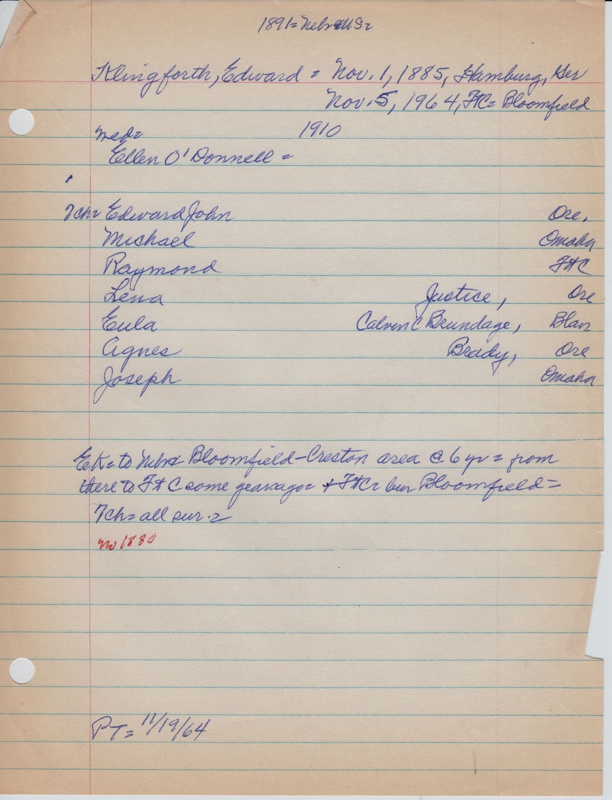 1891= Nebr + US=
Klingforth, Edward = Nov. 1, 1885, Hamburg, Ger
Nov. 5, 1964, Ft C= Bloomfield
med= 1910
Ellen O'Donnell =
7ch= Edward John Ore,
Michael Omaha
Raymond Ft C
Lena Justice, Ore
Eula Calvin C Brundage, Blair
Agnes Brady, Ore
Joseph Omaha
EK= to Nebr Bloomfield-Creston area @ 6 yr = from
there to Ft C some years ago = Ft C= bur Bloomfield=
7ch= all sur.=
no 1880
PT= 11/19/64